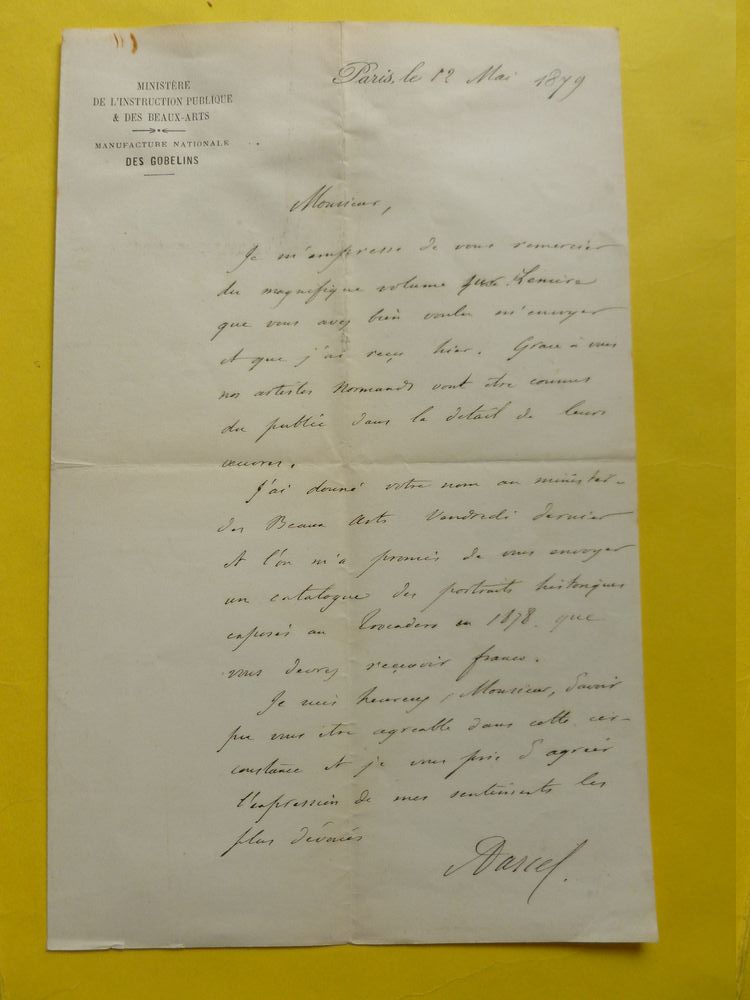 MINISTÈRE
DE L'INSTRUCTION PUBLIQUE
& DES BEAUX-ARTS
MANUFACTURE NATIONALE
DES GOBELINS
Paris, le 12 Mai 1879
Monsieur,
Je m'empresse de vous remercier
du magnifique volume Lemire
que vous avez bien voulu m'envoyer
et que j'ai reçu hier. Grace à vous
nos artistes Normands vont être connus
du public dans le détail de leurs
œuvres.
J'ai donné votre nom au minister-
des Beaux Arts Vendredi dernier
et l'on m'a promis de vous envoyer
un catalogue des portraits historiques
exposés au Trocadero en 1878. que
vous devrez recevoir franco.
Je suis heureux, Monsieur, d'avoir
pu vous être agréable dans cette cir-
constance et je vous prie d'agréer
l'expression de mes sentiments les
plus dévoués
ADarcel.